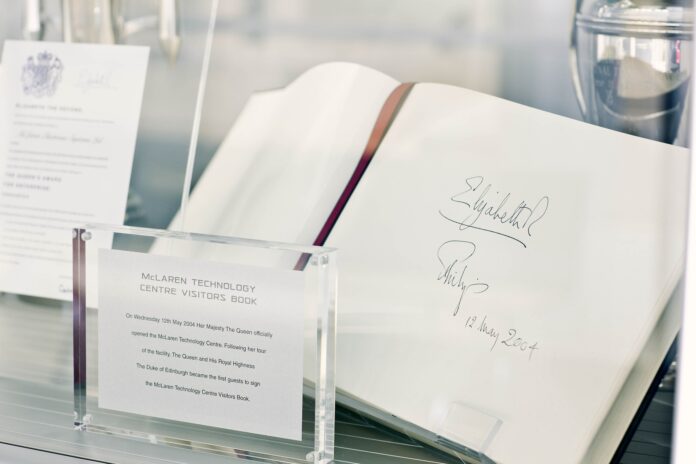 ELIZABETH THE SECOND,
THE QUEEN'S AWARD
FOR ENTERPRISE
McLAREN TECHNOLOGY
CENTRE VISITORS BOOK
On Wednesday 12th May 2004 Her Majesty The Queen officially
opened the McLaren Technology Centre. Following her tour
of the facility, The Queen and His Royal Highness
The Duke of Edinburgh became the first guests to sign
the McLaren Technology Centre Visitors Book.
Elizabeth R
Philip
12 May 2004